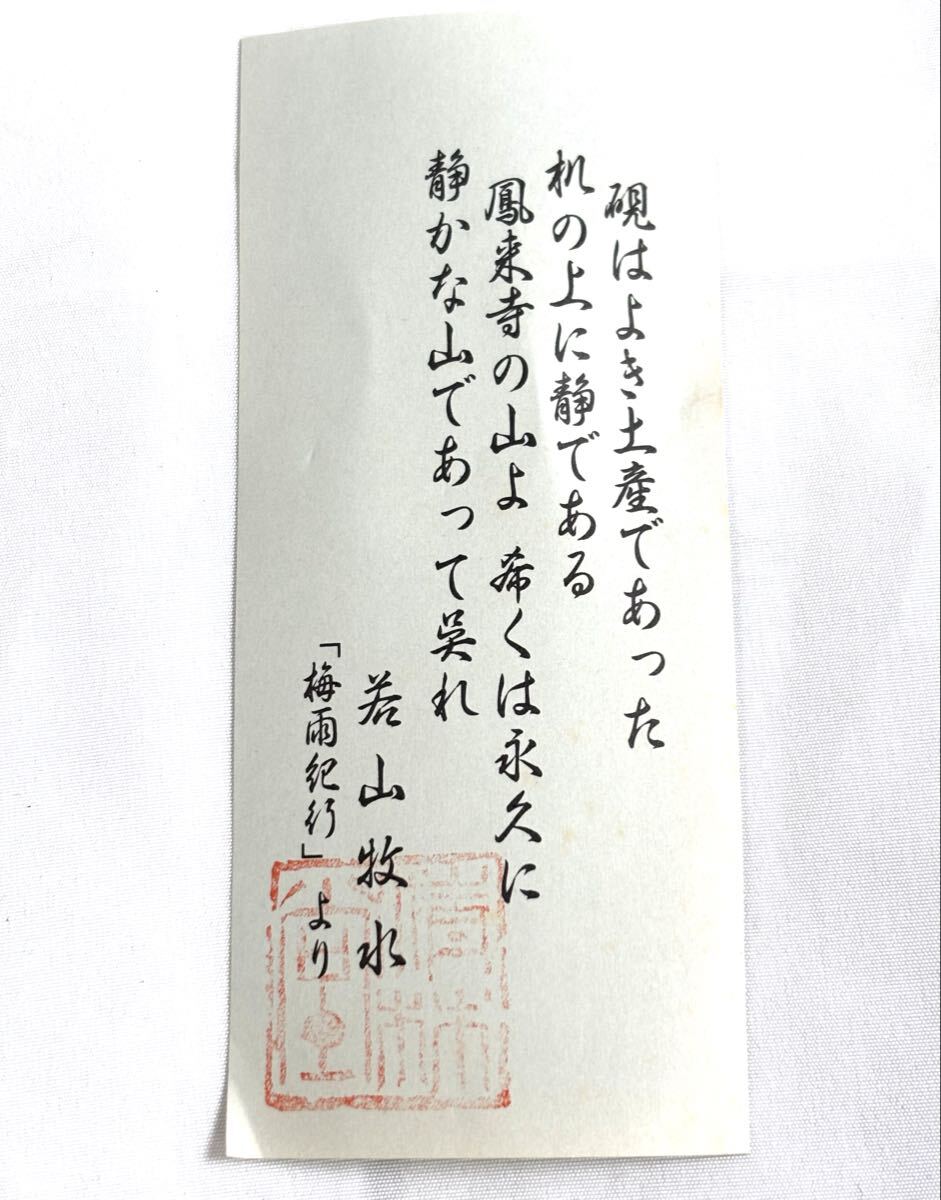 硯はよき土産であった
机の上に静である
鳳来寺の山よ 希くは永久に
静かな山であって呉れ
若山牧水
「梅雨紀行」より